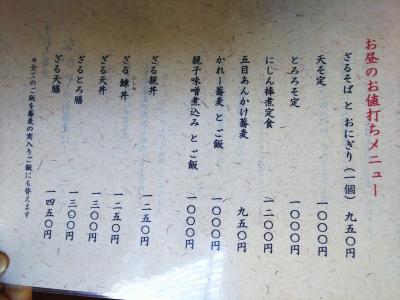 お昼のお値打ちメニュー
ざるそば と おにぎり（一個） 九五〇円
天そ定 一〇〇〇円
とろろそ定 一〇〇〇円
にしん棒煮定食 一二〇〇円
五目あんかけ蕎麦 九五〇円
かれー蕎麦 と ご飯 一〇〇〇円
親子味噌煮込み と ご飯 一〇〇〇円
ざる親丼 一二五〇円
ざる鰊丼 一二五〇円
にしん
ざる天丼 一三〇〇円
ざるとろ膳 一三〇〇円
ざる天膳 一四五〇円
＊全てのご飯を蕎麦の実入りご飯にも替えます